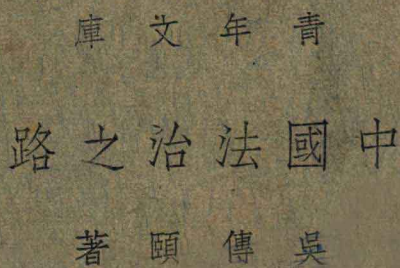 青年文庫
中國法治之路
吳傳頤著